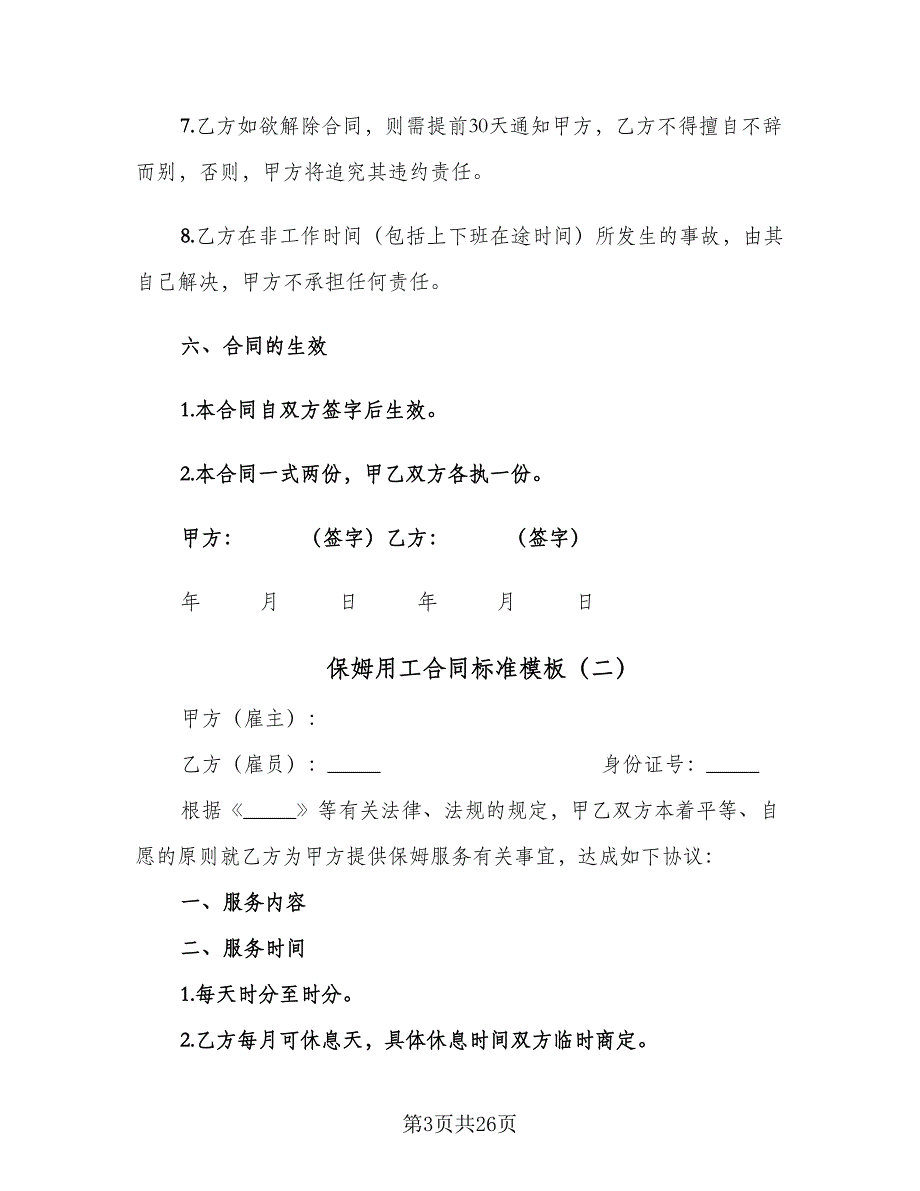 7.乙方如欲解除合同，则需提前30天通知甲方，乙方不得擅自不辞
而别，否则，甲方将追究其违约责任。
8.乙方在非工作时间（包括上下班在途时间）所发生的事故，由其
自己解决，甲方不承担任何责任。
六、合同的生效
1.本合同自双方签字后生效。
2.本合同一式两份，甲乙双方各执一份。
甲方： （签字）乙方： （签字）
年 月 日 年 月 日
保姆用工合同标准模板（二）
甲方（雇主）：
乙方（雇员）：_____ 身份证号：_____
根据《_____》等有关法律、法规的规定，甲乙双方本着平等、自
愿的原则就乙方为甲方提供保姆服务有关事宜，达成如下协议：
一、服务内容
二、服务时间
1.每天时分至时分。
2.乙方每月可休息天，具体休息时间双方临时商定。
第3页共26页